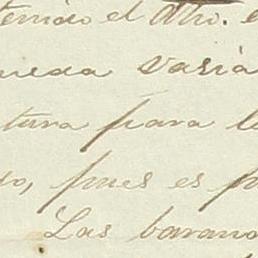 tenido el Mtro. e
ueda varia
tura para l
o, pues es p
Las barand